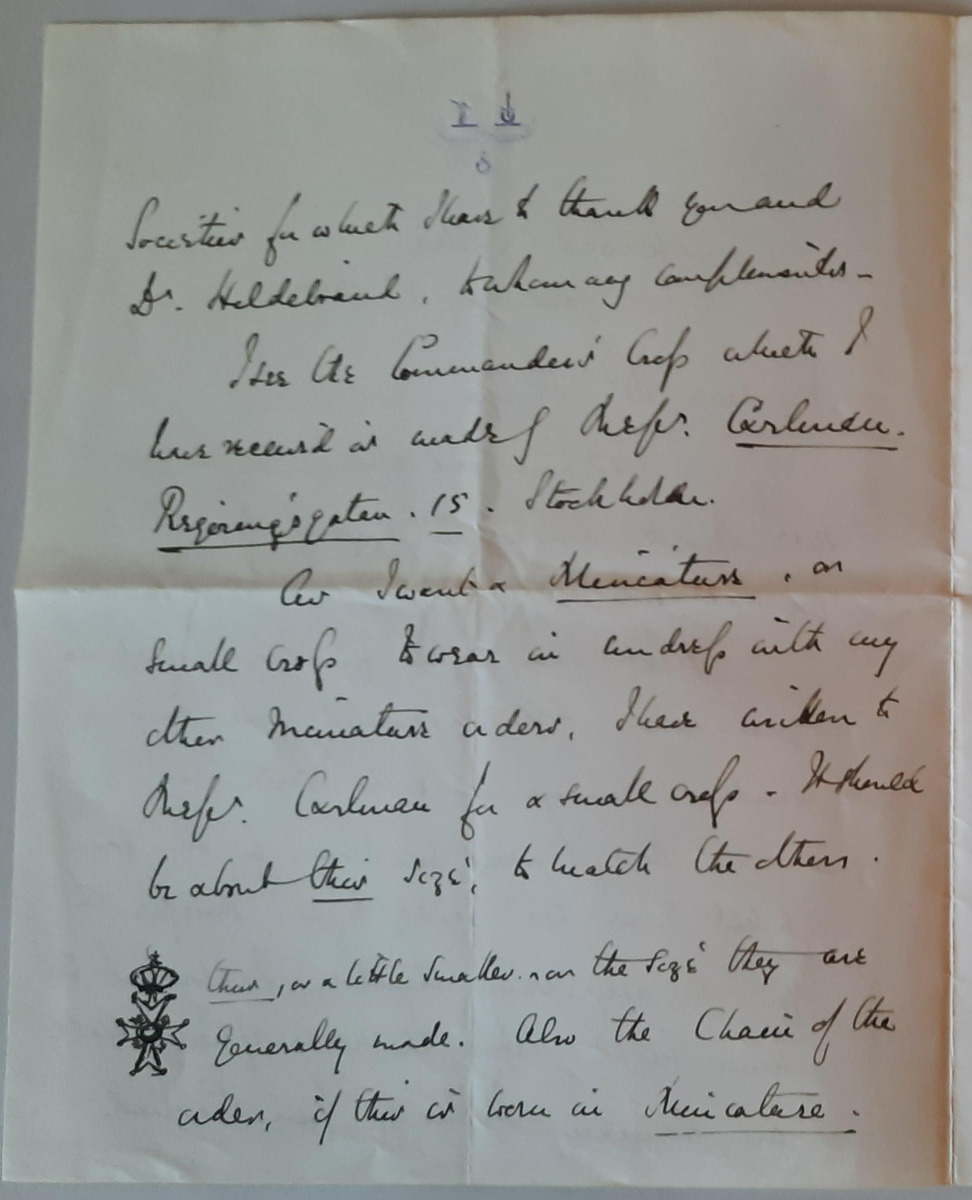 Societies for which I have to thank you and
Dr. Hildebrand, to whom my compliments –
I see the Commanders' Crofs which I
have receiv'd is made of Mefsr. Carlman.
Regeringsgatan. 15. Stockholm.
As I want a Miniature, or
small crofs to wear in undrefs with my
other miniature orders, I have written to
Mefsr. Carlman for a small crofs – It should
be about this size, to match the others.
this, or a little smaller. or the size they are
generally made. Also the Chain of the
order, if this is worn in Miniature.